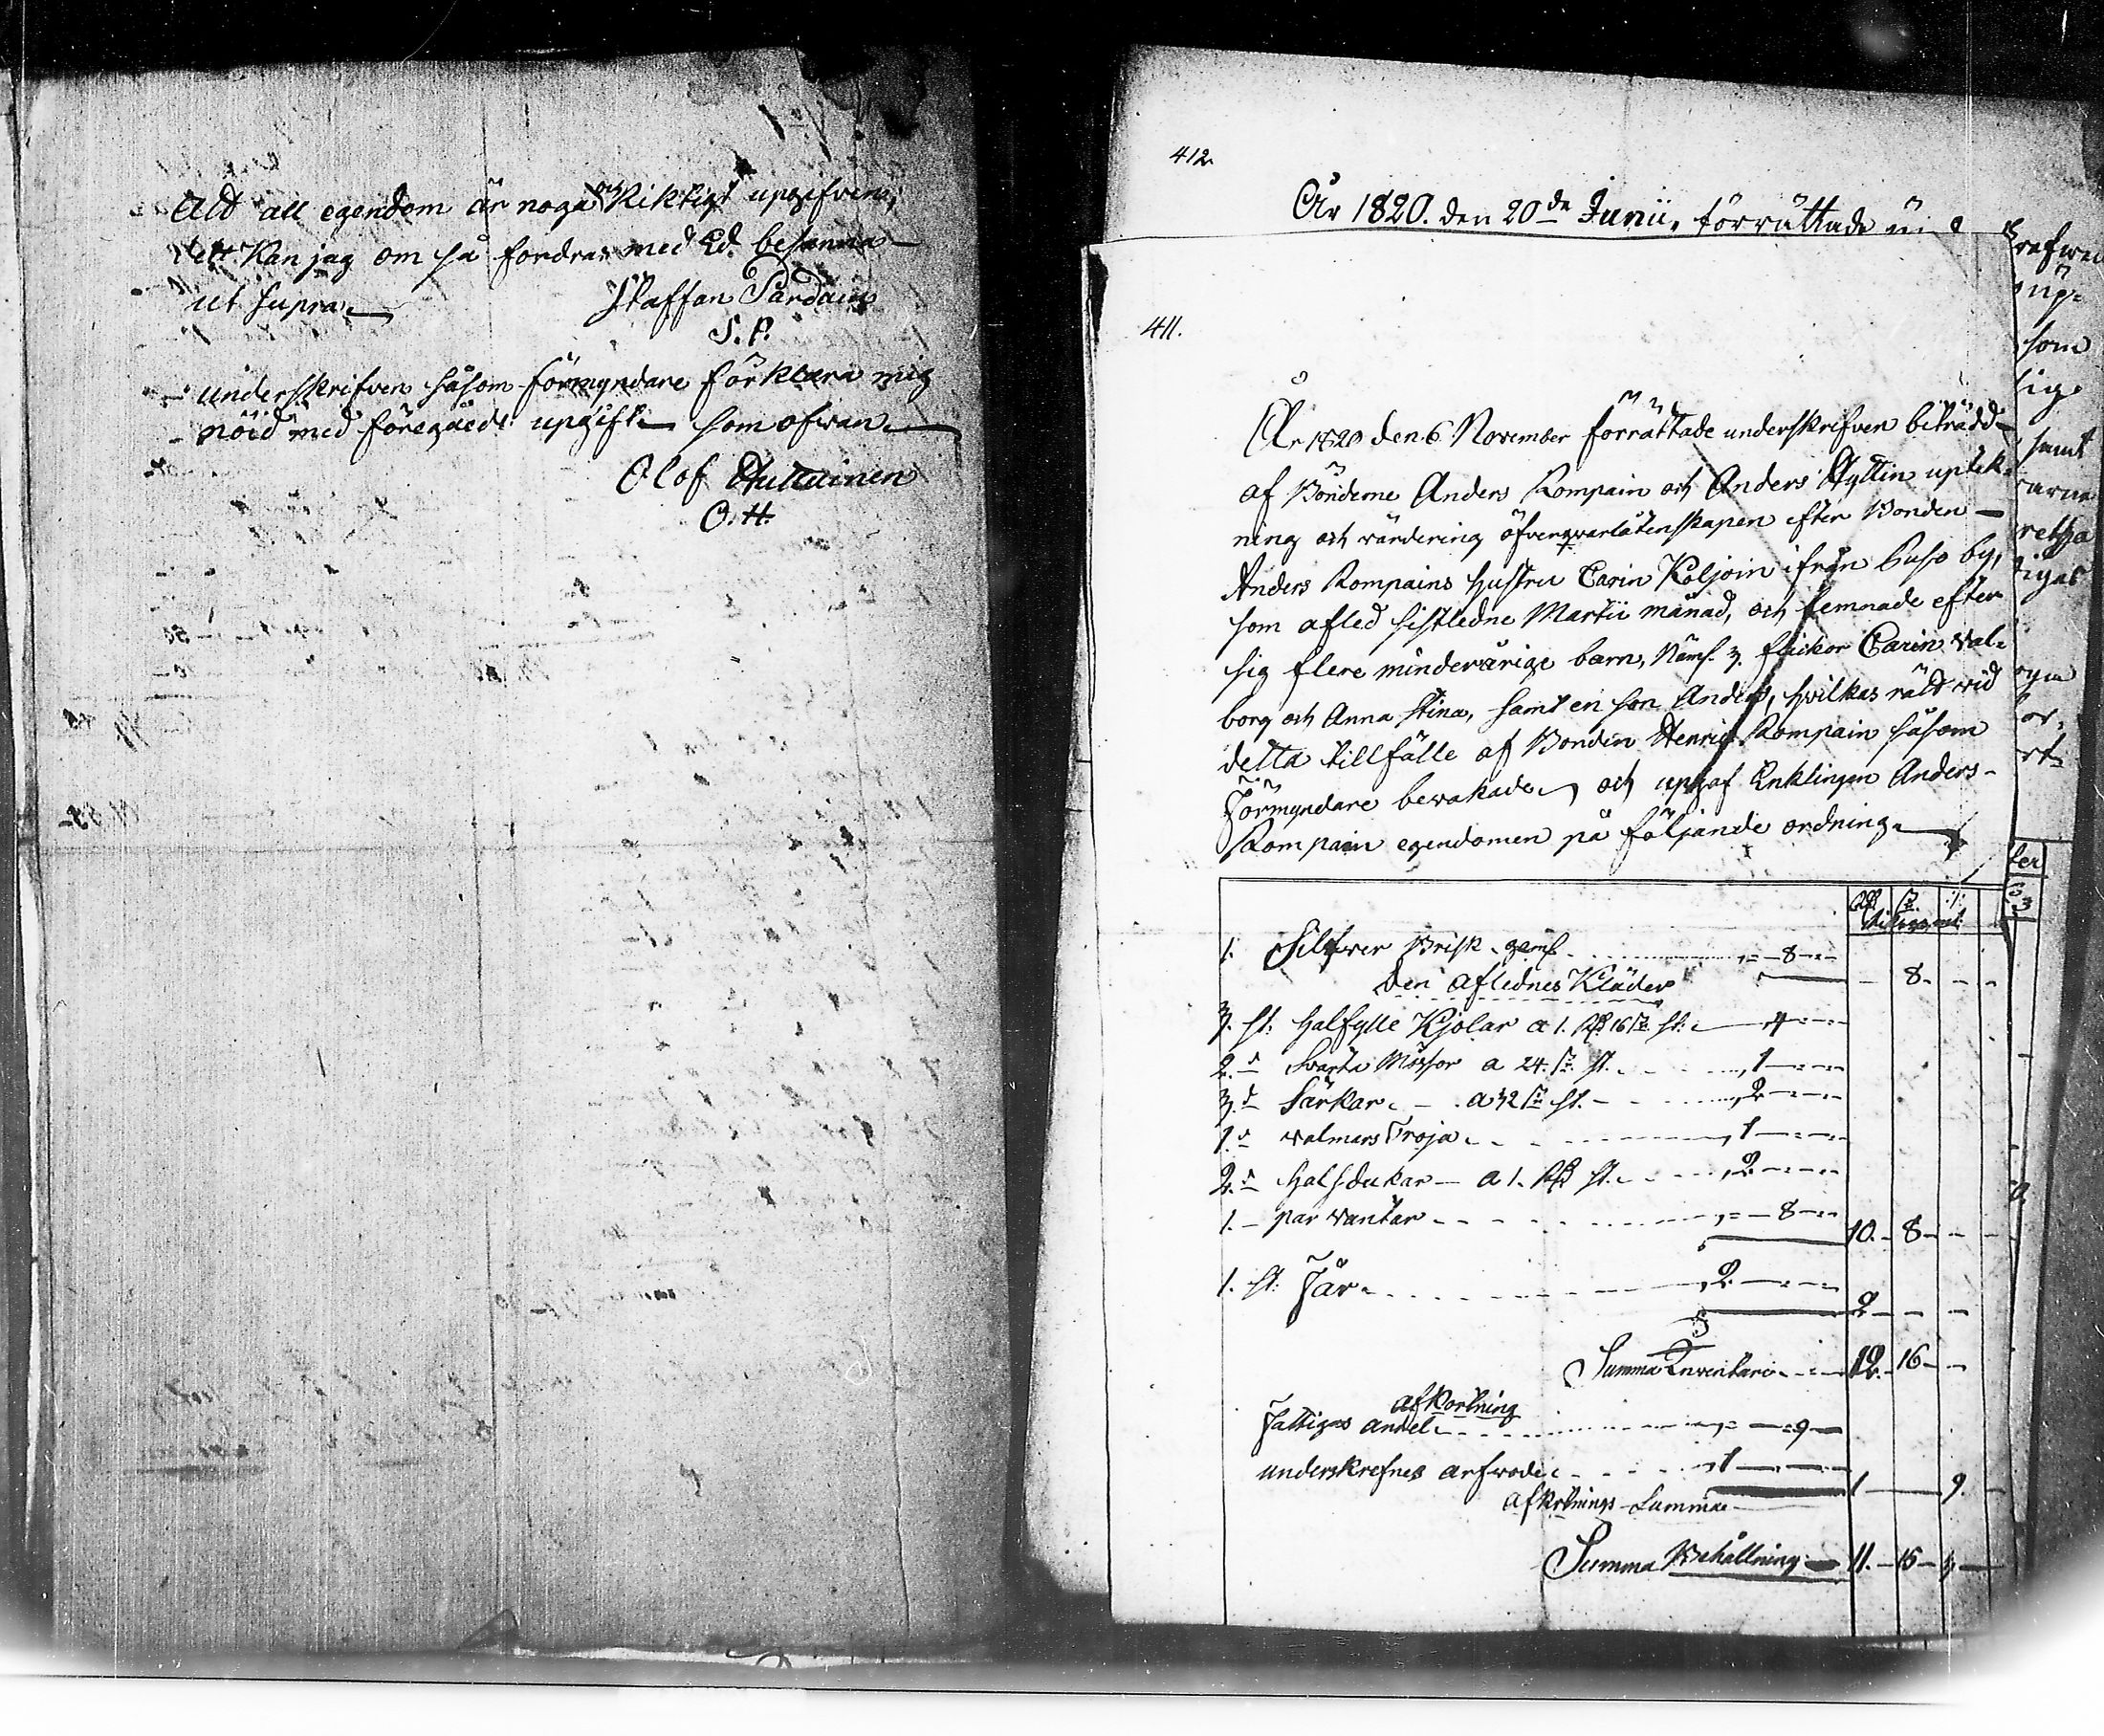 Att all egendom är noga och Riktigt upgifven,
dett Kan jag om så fordras med Ed. besanna
ut supra. Staffan Pardain
S. P.
underskrifven såsom förmyndare förklara mig
nöid med föregåede upgift som ofwan
Olof Huttuinen
O. H.
412.
År 1820. den 20de Junii, förrättade
411.
År 1820 den 6. November förrättade underskrifven biträdd
af Bönderne Anders Rompain och Anders Hyttin uptek-
ning och värdering öfver qwarlåtenskapen efter Bonden
Anders Rompains hustru Carin Koljoin ifrån Puso by,
som afled sistledne Martii månad, och lemnade efter
sig flere minderårige barn, Näml. 3. flickor Carin, Wal-
borg och Anna Stina, samt en son Anders, hvilkas rätt wid
detta tillfälle af Bonden Henric Rompain såsom
Förmyndare bewakade, och upgaf Enklingen Anders
Rompain egendomen på följande ordning.
1. Silfwer Brisk. geml. 8
den aflednes Kläder 8.
3. st: halfylle Kjolar a 1. Rd 16 s. st. 4
2. d Svarta Mössor a 24. s. st. 1
3. d Särkar. a 32 s. st. 2
1. d walmars Troja. 1
2. d halsdukar a 1. Rd st. 2
1. par wantar 8 10. 8
1. st: Får. 2
2
Summa Inventarii 12. 16
afkortning
Fattigas andel 9
underskrefnes arfwode 1
1 9.
afkortnings Summa
Summa Behållning 11. 15 3